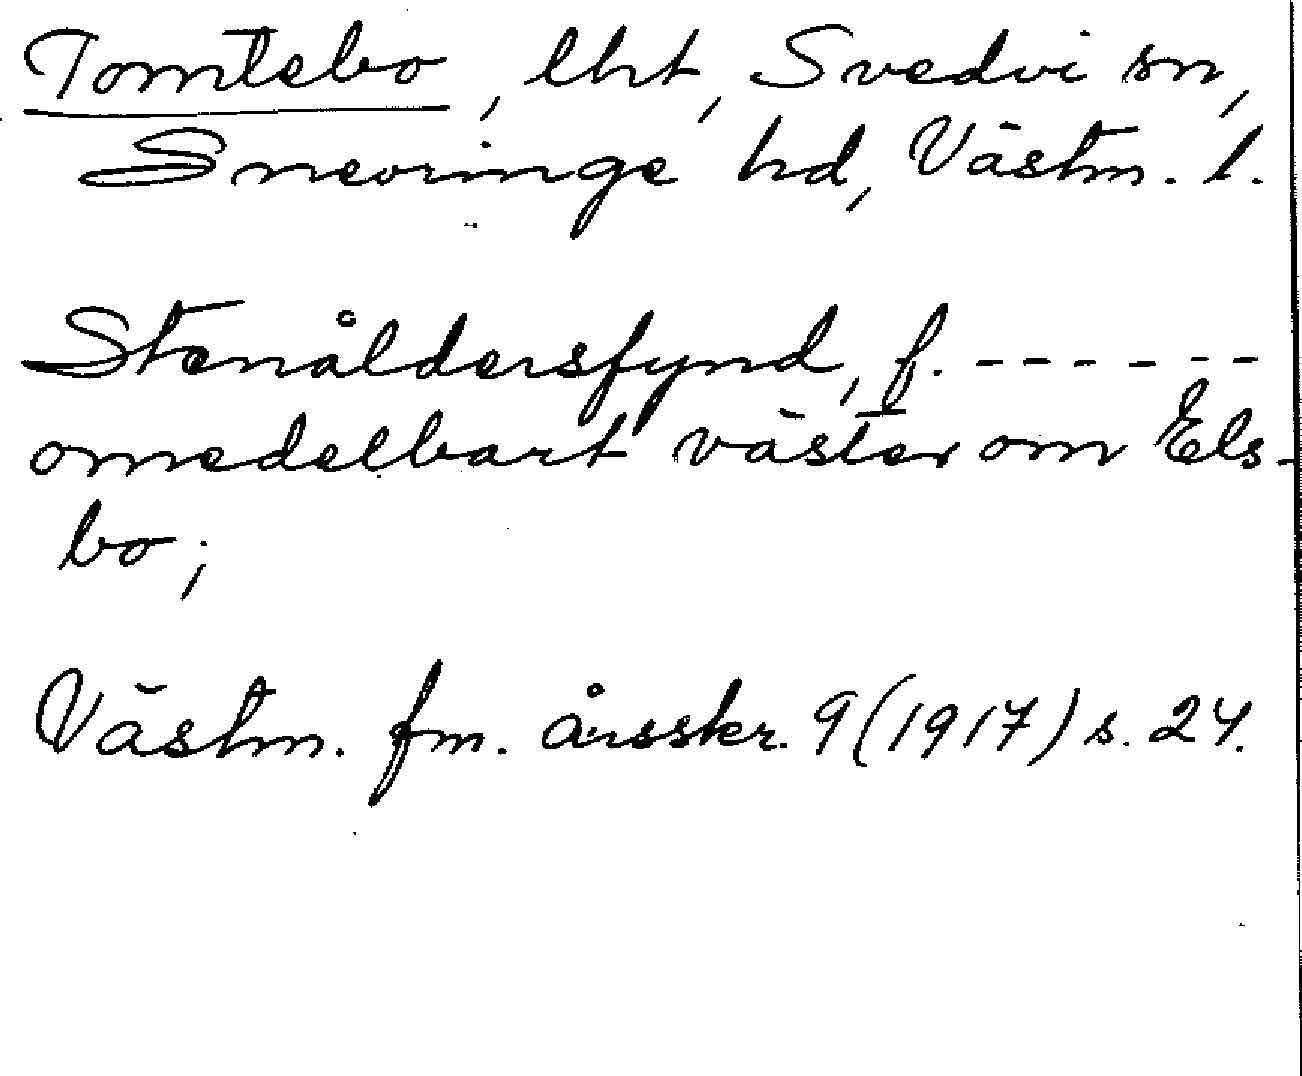 Tomtebo, lht, Svedvi sn,
Snevringe hd, Västm. l.
Stenåldersfynd, f. ------
omedelbart väster om Els-
bo;
Västm. fm. årsskr. 9 (1917) s. 24.